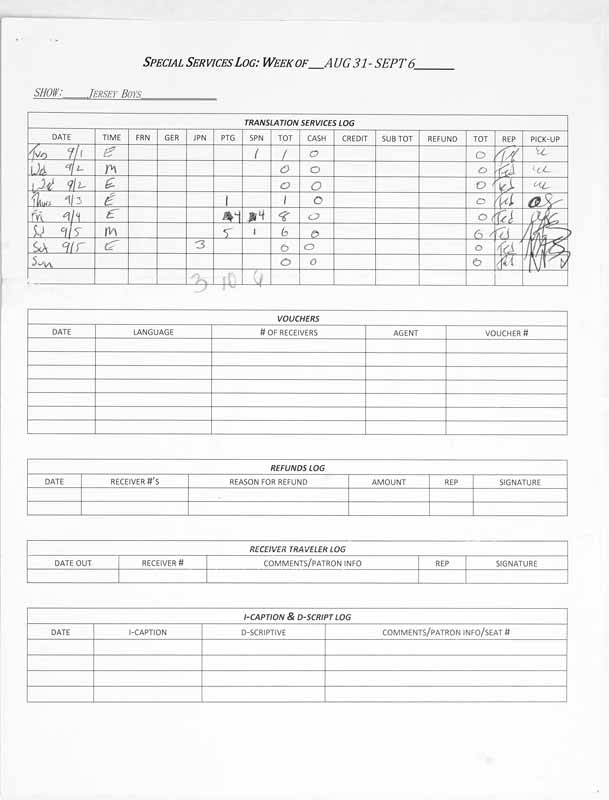 SPECIAL SERVICES LOG: WEEK OF __AUG 31- SEPT 6______
SHOW:____JERSEY BOYS____________
TRANSLATION SERVICES LOG
DATE TIME FRN GER JPN PTG SPN TOT CASH CREDIT SUB TOT REFUND TOT REP PICK-UP
Tues 9/1 E 1 1 0 0 Ted
Wed 9/2 M 0 0 0 Ted
Wed 9/2 E 0 0 0 Ted
Thurs 9/3 E 1 1 0 0 Ted
Fri 9/4 E 4 4 8 0 0 Ted
Sat 9/5 M 5 1 6 0 0 Ted
Sat 9/5 E 3 0 0 0 Ted
Sun 0 0 0 Ted
3 10 6
VOUCHERS
DATE LANGUAGE # OF RECEIVERS AGENT VOUCHER #
REFUNDS LOG
DATE RECEIVER #'S REASON FOR REFUND AMOUNT REP SIGNATURE
RECEIVER TRAVELER LOG
DATE OUT RECEIVER # COMMENTS/PATRON INFO REP SIGNATURE
I-CAPTION & D-SCRIPT LOG
DATE I-CAPTION D-SCRIPTIVE COMMENTS/PATRON INFO/SEAT #